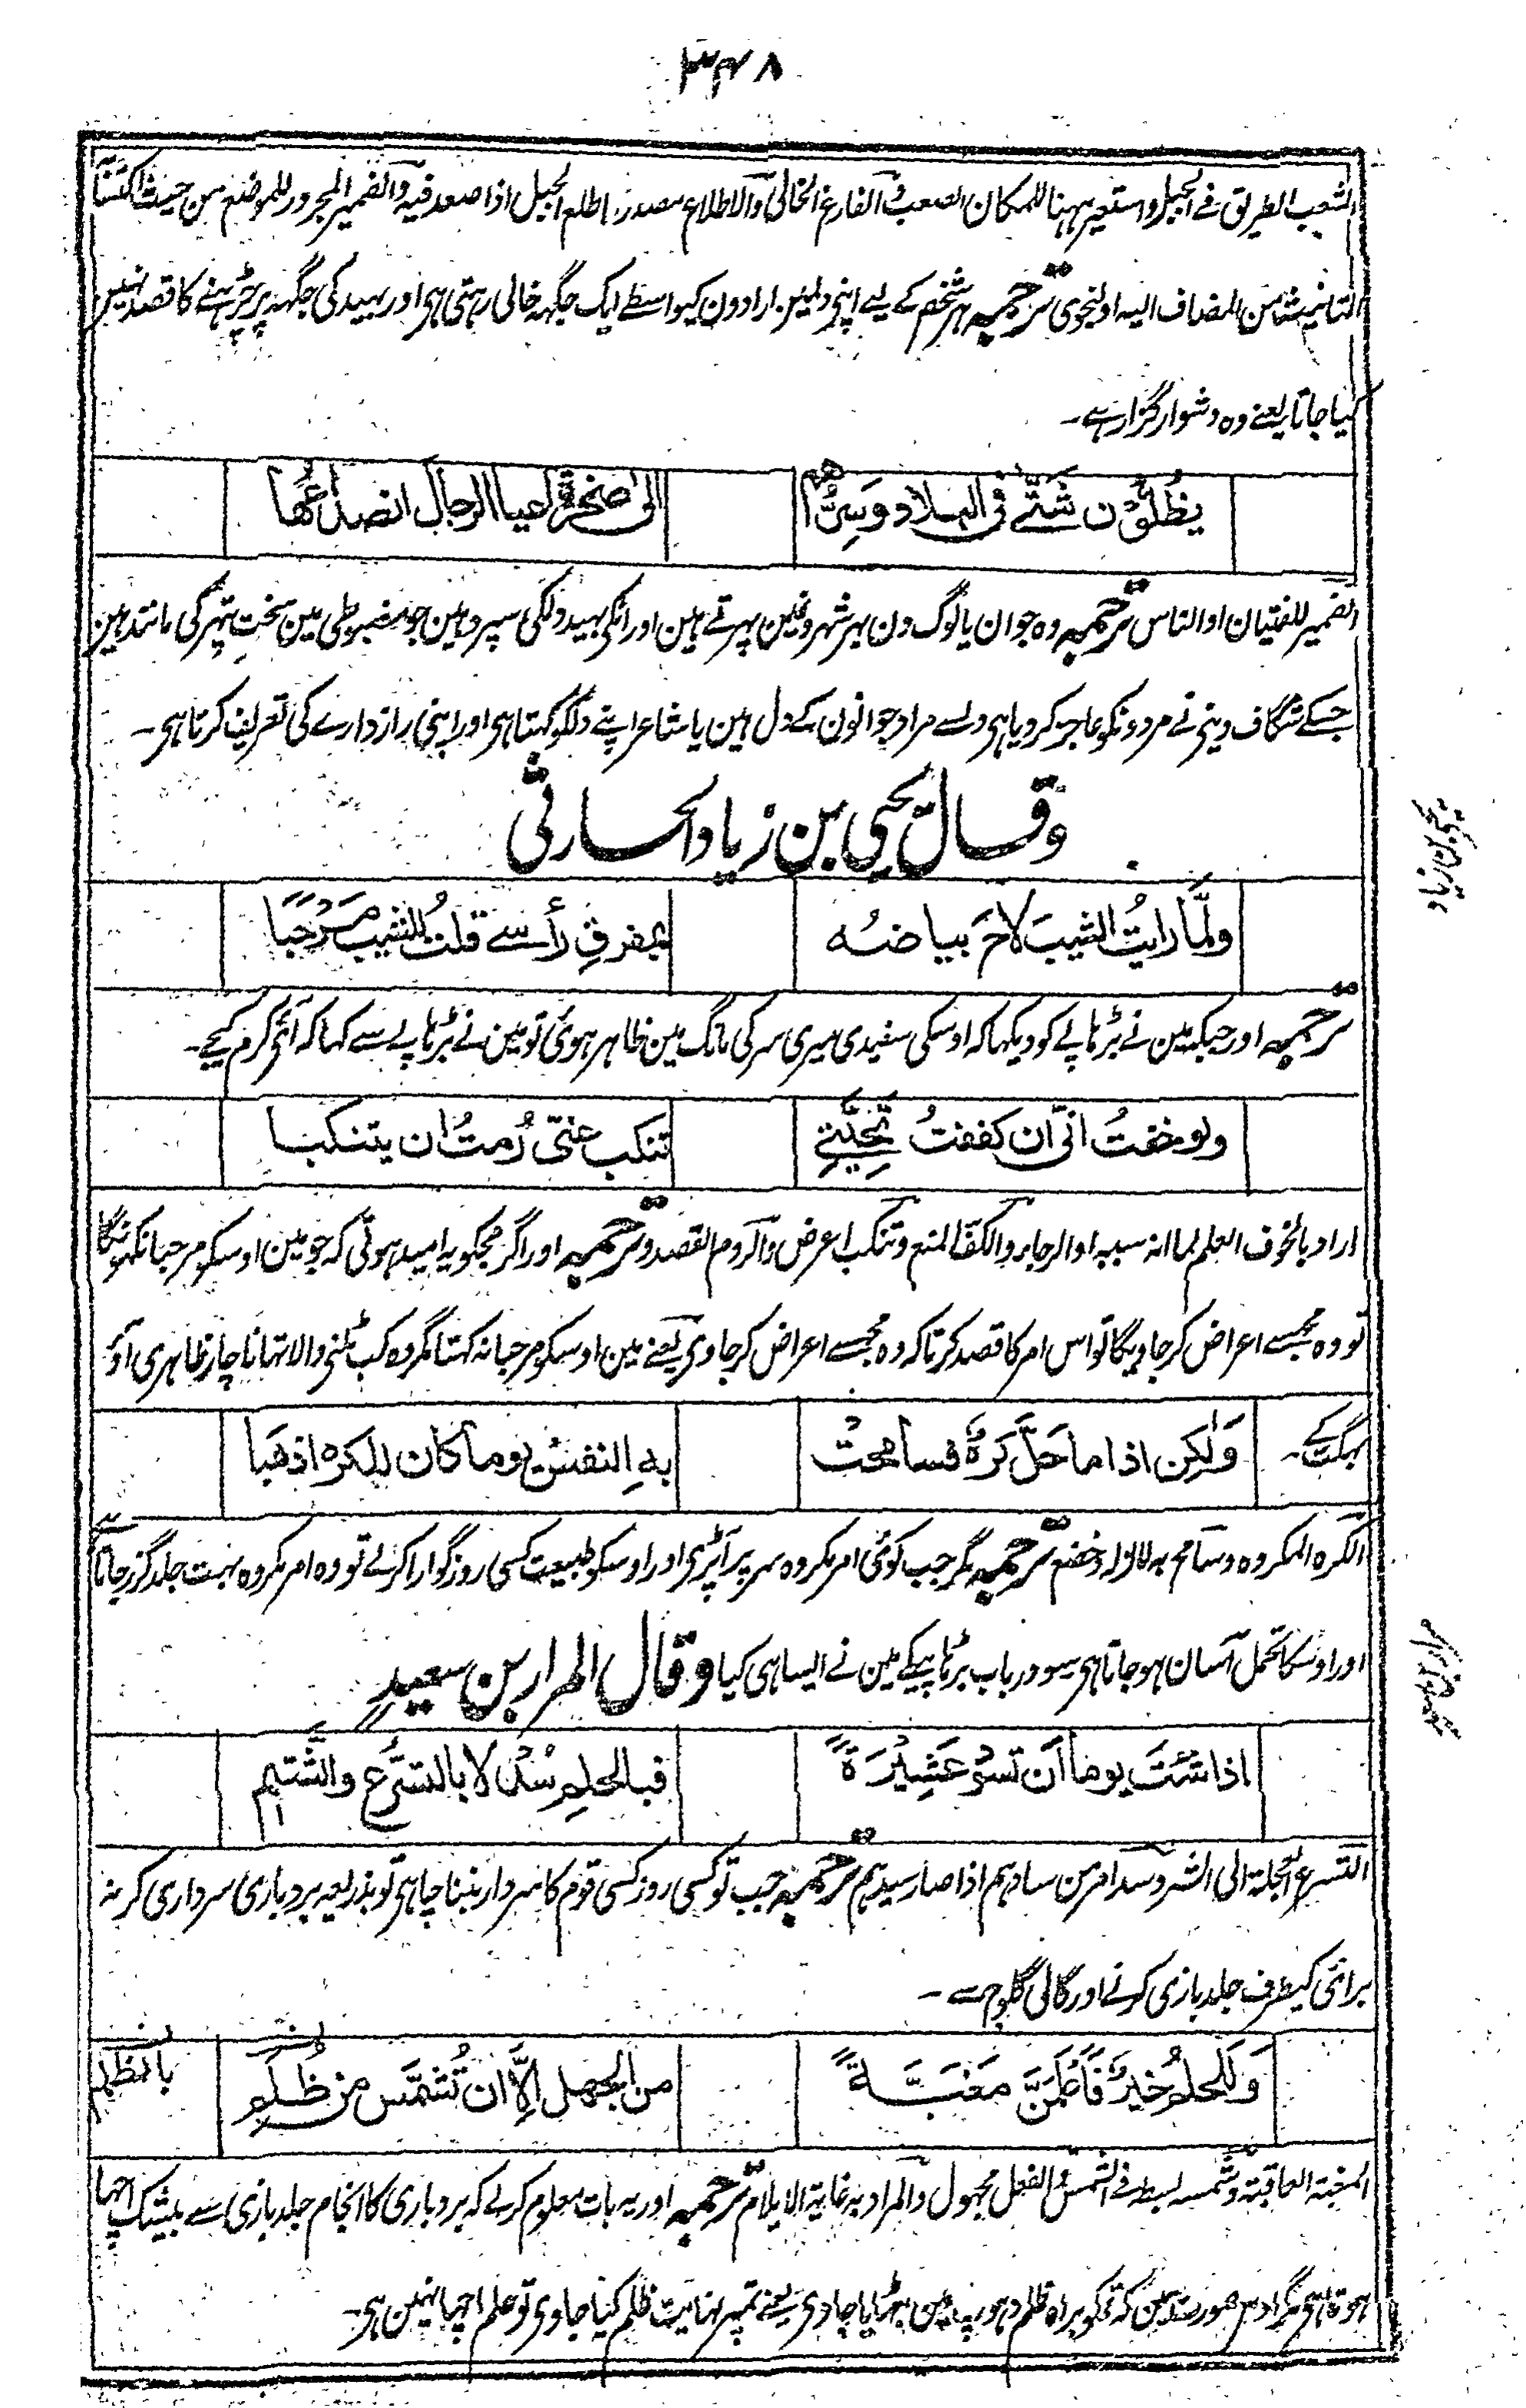 ۳۴۸
الشعب الطریق فی الجبل و استعیر ههنا للمکان الصعب و الفارغ الخالی و الاطلاع مصدر اطلع الجبل اذا صعد فیه و الضمیر المجرور للموضع من حیث اکتسابه
التانیث من المضاف الیه او لنجوی ترجمہ ہر شخص کے لیے اپنی دلمین ارادون کیواسطے ایک جگہہ خالی رہتی ہی اور بہید کی جگہہ پر چڑہنے کا قصد نہین
کیا جاتا یعنے وہ دشوار گزار ہے۔
یظلون شَتّٰے فی البلاد وَسِرُّهم
الی صخرةٍ اعیا الرجال انصداعُها
الضمیر للفتیان او الناس ترجمہ وہ جوان یا لوگ دن بہر شہرونمین پہرتے ہین اور انکی بہید دلکی سپرد ہین جو مضبوطی مین سخت پتہر کی مانند ہین
جسکے شگاف دینی نے مردونکو عاجز کر دیا ہی دلسے مراد جوانون کے دل ہین یا شاعر اپنے دلکو کہتا ہی اور اپنی رازدارے کی تعریف کرتا ہی۔
وقال یحیی بن زیاد الحارثی
یحیی بن زیاد
ولمّا رایتُ الشیبَ لاحَ بیاضُه
بمفرقِ رأسے قلتُ للشیب مَرْحَبًا
ترجمہ اور جبکہ مین نے بڑہاپے کو دیکہا کہ اوسکی سفیدی میری سر کی مانگ مین ظاہر ہوئی تو مین نے بڑہاپے سے کہا کہ آئی کرم کیجے۔
ولو خفتُ انّی ان کففتُ تَحِیَّتِے
تنکب عنّی رُمتُ ان یتنکبا
اراد بالخوف العلم لما انه سببه او الرجاء و الکف المنع و تنکب اعرض و الروم القصد ترجمہ اور اگر مجکو یہ امید ہوتی کہ جو مین اوسکو مرحبا نکہونگا
تو وہ مجسے اعراض کر جاویگا تو اس امر کا قصد کرتا کہ وہ مجسے اعراض کر جاوی یعنے مین اوسکو مرحبا نہ کہتا مگر وہ کب ٹلنی والا تہا ناچار ظاہری آؤ
بہگت کے۔
وَلٰکِن اذا ما حَلَّ کَرهٌ فسامحتْ
بهِ النفسُ یوما کان للکره اذهَبا
الکره المکروه و سامح به لان له و خضع ترجمہ مگر جب کوئی امر مکروہ سر پر آپڑی اور اوسکو طبیعت کسی روز گوارا کر لے تو وہ امر مکروہ بہت جلد گزر جاتا ہے
اور اوسکا تحمل آسان ہو جاتا ہی سو در باب بڑہاپیکے مین نے ایسا ہی کیا وقال المرار بن سعیدٍ
اذا شئتَ یوما اَن تسودَ عَشِیْرَةً
فبالحلمِ سُد لا بالتسرُّع والشَّتمِ
التسرع العجلة الی الشر و سد امر من سادہم اذا صار سیدہم ترجمہ جب تو کسی روز کسی قوم کا سردار بننا چاہی تو بذریعہ بردباری سرداری کر نہ
برائی کیطرف جلد بازی کرنے اور گالی گلوج سے۔
وَلَلحلمُ خیرٌ فَاعْلَمَنَّ مَغَبَّةً
من الجهل اِلَّا ان تُشمَّس من ظُلمِ
المغبة العاقبة و شمسه بسطه فی الشمس و الفعل مجهول و المراد به غایة الایلام ترجمہ اور یہ بات معلوم کر لے کہ بردباری کا انجام جلد بازی سے بیشک اچہا
ہوتا ہی مگر اوس صورت مین کہ تمکو براہ ظلم دہوپ مین بٹہایا جاوی یعنے تمپر نہایت ظلم کیا جاوی تو حلم اچہا نہین ہی۔